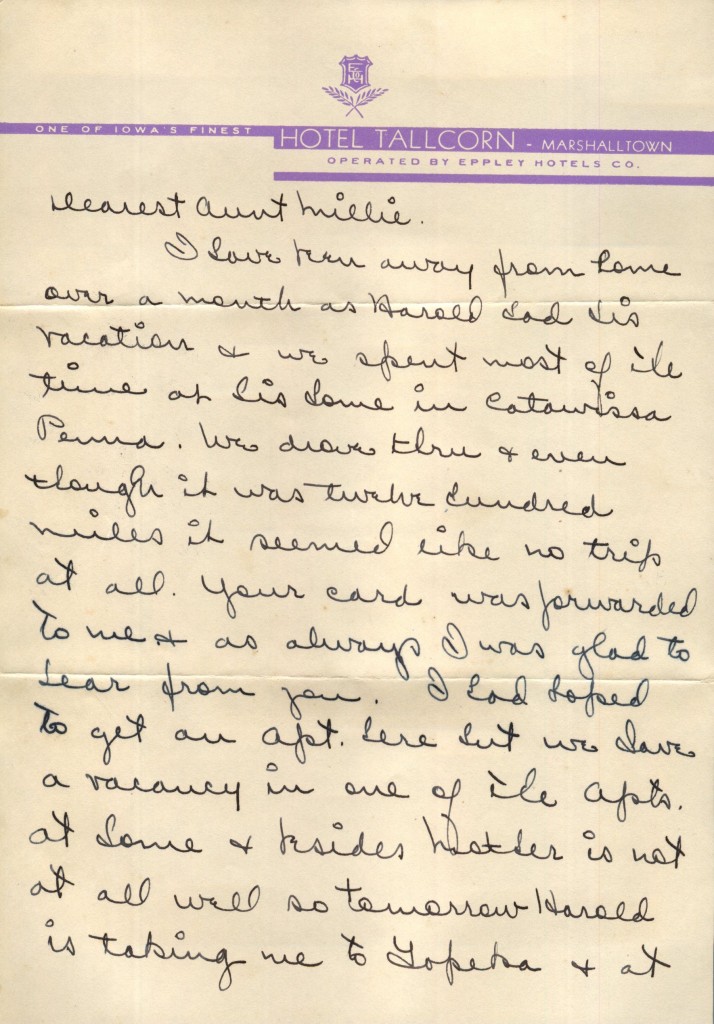 ONE OF IOWA'S FINEST HOTEL TALLCORN - MARSHALLTOWN
OPERATED BY EPPLEY HOTELS CO.
Dearest Aunt Millie.
I have been away from home
over a month as Harold had his
vacation & we spent most of the
time at his home in Catawissa
Penna. We drove thru & even
though it was twelve hundred
miles it seemed like no trip
at all. Your card was forwarded
to me & as always I was glad to
hear from you. I had hoped
to get an apt. here but we have
a vacancy in one of the apts.
at home & besides Mother is not
at all well so tomorrow Harold
is taking me to Topeka & at